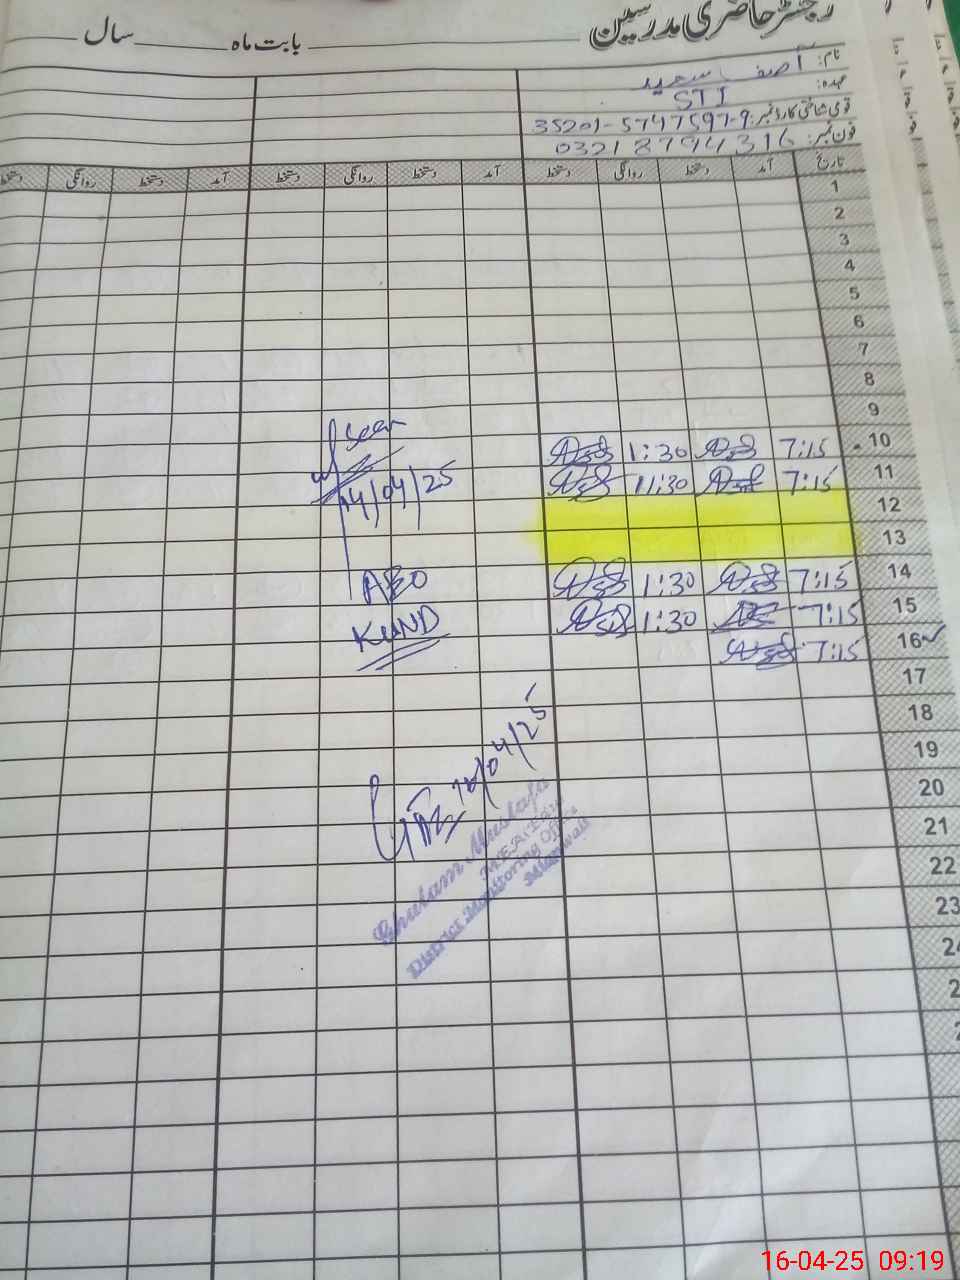 رجسٹر حاضری مدرسین
بابت ماہ ________ سال ________
نام: آصف سعید
عہدہ: STI
قومی شناختی کارڈ نمبر: 35201-5747597-9
فون نمبر: 0321 8794316
تاریخ آمد دستخط روانگی دستخط آمد دستخط روانگی دستخط آمد دستخط روانگی دستخط
1
2
3
4
5
6
7
8
9
10 7:15 1:30
11 7:15 11:30
12
13
14 7:15 1:30
15 7:15 1:30
16 7:15
17
18
19
20
21
22
23
24
2
2
Seen
14/04/25
AEO
KUND
16/04/25
Ghulam Mustafa
MEA
District Monitoring Office
Mianwali
16-04-25 09:19